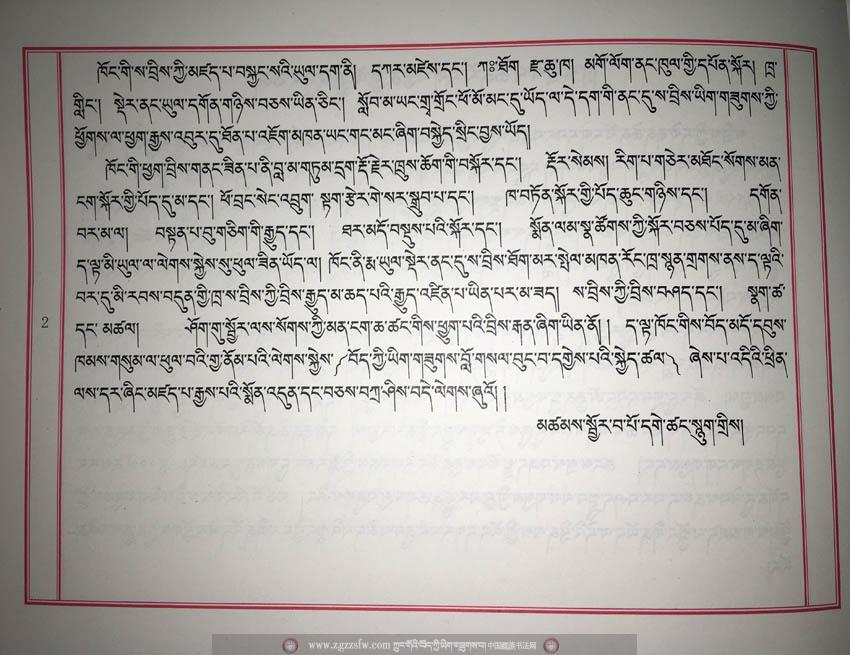 ཁོང་གི་ས་བྲིས་ཀྱི་མཛད་པ་བསྐྱང་སའི་ཡུལ་དག་ནི། དཀར་མཛེས་དང་། ཀཿཐོག རྫ་ཆུ་ཁ། མགོ་ལོག་ནང་ཁུལ་གྱི་དཔོན་སྐོར། ཁྲ་
གླིང་། སྡེར་ནང་ཡུལ་དགོན་གཉིས་བཅས་ཡིན་ཅིང་། སློབ་མ་ཡང་གྲྭ་གྲོང་ཕོ་མོ་མང་དུ་ཡོད་ལ་དེ་དག་གི་ནང་དུ་ས་བྲིས་ཡིག་གཟུགས་ཀྱི་
ཕྱོགས་ལ་ཕྱག་རྒྱས་འབུར་དུ་ཐོན་པ་འཇོག་མཁན་ཡང་གང་མང་ཞིག་བསྐྱེད་སྲིང་བྱས་ཡོད།
ཁོང་གི་ཕྱག་བྲིས་གནང་ཟིན་པ་ནི་བླ་མ་གཏུམ་དྲག་རྡོ་རྗེར་ཁྲུས་ཆོག་གི་བསྐོར་དང་། རྡོར་སེམས། རིག་པ་གཅེར་མཐོང་སོགས་མན་
ངག་སྐོར་གྱི་པོད་དུ་མ་དང་། ཕོ་བྲང་སེང་འབྲུག སྟག་རྩེར་གེ་སར་སྒྲུབ་པ་དང་། ཁ་བཏོན་སྐོར་གྱི་པོད་ཆུང་གཉིས་དང་། དགོན་
བར་མ་ལ། བསྟན་པ་བུ་གཅིག་གི་རྒྱུད་དང་། ཐར་མདོ་བསྡུས་པའི་སྐོར་དང་། སྨོན་ལམ་སྣ་ཚོགས་ཀྱི་སྐོར་བཅས་པོད་དུ་མ་ཞིག་
ད་ལྟ་མི་ཡུལ་ལ་ལེགས་སྐྱེས་སུ་ཕུལ་ཟིན་ཡོད་ལ། ཁོང་ནི་རྨ་ཡུལ་སྡེར་ནང་དུ་ས་བྲིས་ཐོག་མར་སྤེལ་མཁན་རོང་ཁྲ་སྙན་གྲགས་ནས་ད་ལྟའི་
བར་དུ་མི་རབས་བདུན་གྱི་ཁྲ་ས་བྲིས་ཀྱི་བྲིས་རྒྱུད་མ་ཆད་པའི་རྒྱུད་འཛིན་པ་ཡིན་པར་མ་ཟད། ས་བྲིས་ཀྱི་བྲིས་བཤད་དང་། སྣག་ཚ་
དང་ མཚལ། ཤོག་གུ་སྦྱོར་ལས་སོགས་ཀྱི་མན་ངག་ཆ་ཚང་གིས་ཕྱུག་པའི་བྲིས་རྒན་ཞིག་ཡིན་ནོ། ། ད་ལྟ་ཁོང་གིས་བོད་མདོ་དབུས་
ཁམས་གསུམ་ལ་ཕུལ་བའི་གྱ་ནོམ་པའི་ལེགས་སྐྱེས་༼བོད་ཀྱི་ཡིག་གཟུགས་བློ་གསལ་བུང་བ་དགྱེས་པའི་སྐྱེད་ཚལ༽ ཞེས་པ་འདིའི་ཕྲིན་
ལས་དར་ཞིང་མཛད་པ་རྒྱས་པའི་སྨོན་འདུན་དང་བཅས་བཀྲ་ཤིས་བདེ་ལེགས་ཞུའོ། །
མཚམས་སྦྱོར་བ་པོ་དགེ་ཚང་སྨྱུག་གྲིས།
2
www.zgzzsfw.com ཀྲུང་གོའི་བོད་ཀྱི་ཡིག་གཟུགས་དྲ། 中国藏族书法网